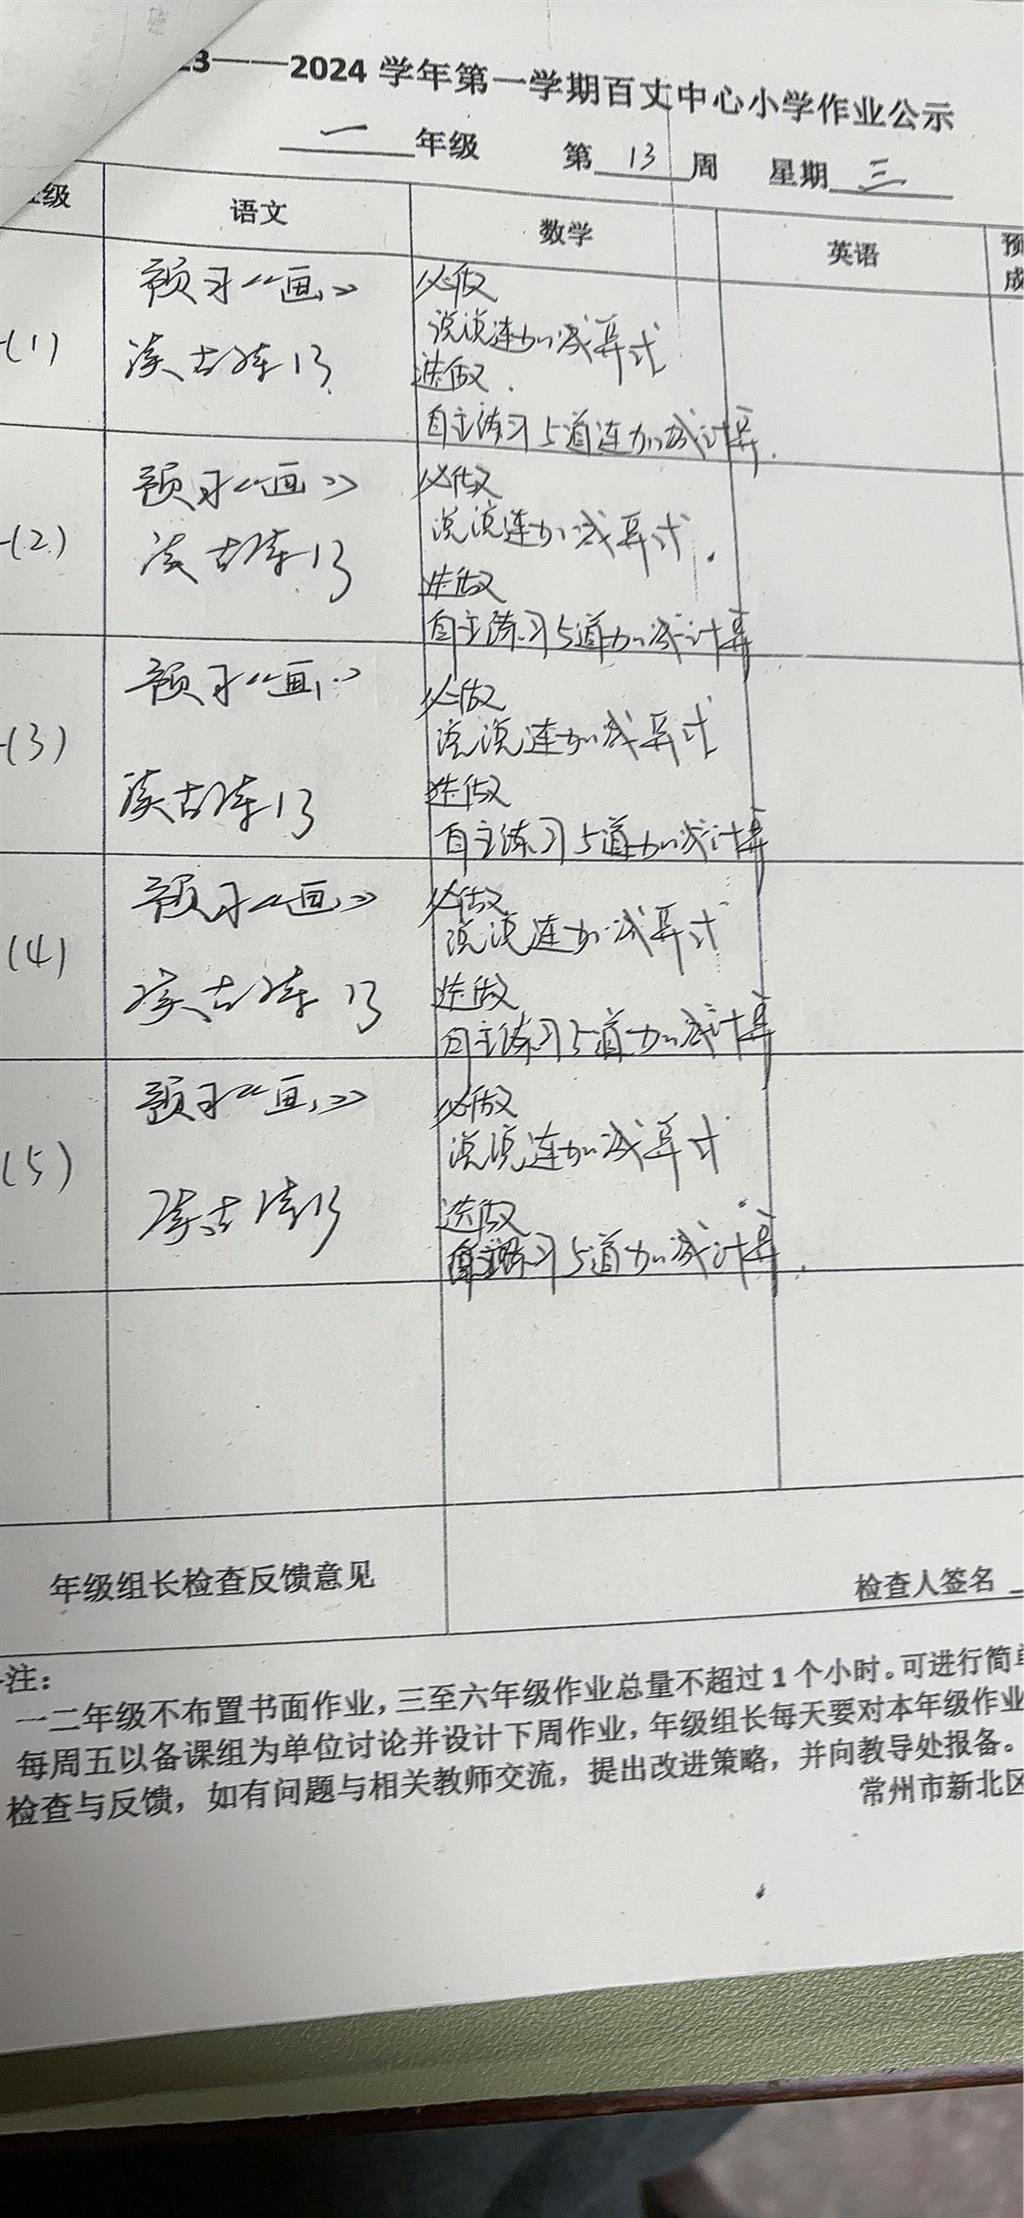 23——2024 学年第一学期百丈中心小学作业公示
一 年级 第 13 周 星期 三
级 语文 数学 英语 预
成
(1) 预习《画》 必做
说说连加减算式
读古诗13 选做.
自主练习5道连加减计算.
(2) 预习《画》 必做
说说连加减算式.
读古诗13 选做
自主练习5道加减计算
(3) 预习《画》 必做
说说连加减算式
读古诗13 选做
自主练习5道加减计算
(4) 预习《画》 必做
说说连加减算式
读古诗13 选做
自主练习5道加减计算
(5) 预习《画》 必做
说说连加减算式
读古诗13 选做
自主练习5道加减计算.
年级组长检查反馈意见
检查人签名
注:
一二年级不布置书面作业,三至六年级作业总量不超过1个小时。可进行简单
每周五以备课组为单位讨论并设计下周作业,年级组长每天要对本年级作业
检查与反馈,如有问题与相关教师交流,提出改进策略,并向教导处报备。
常州市新北区